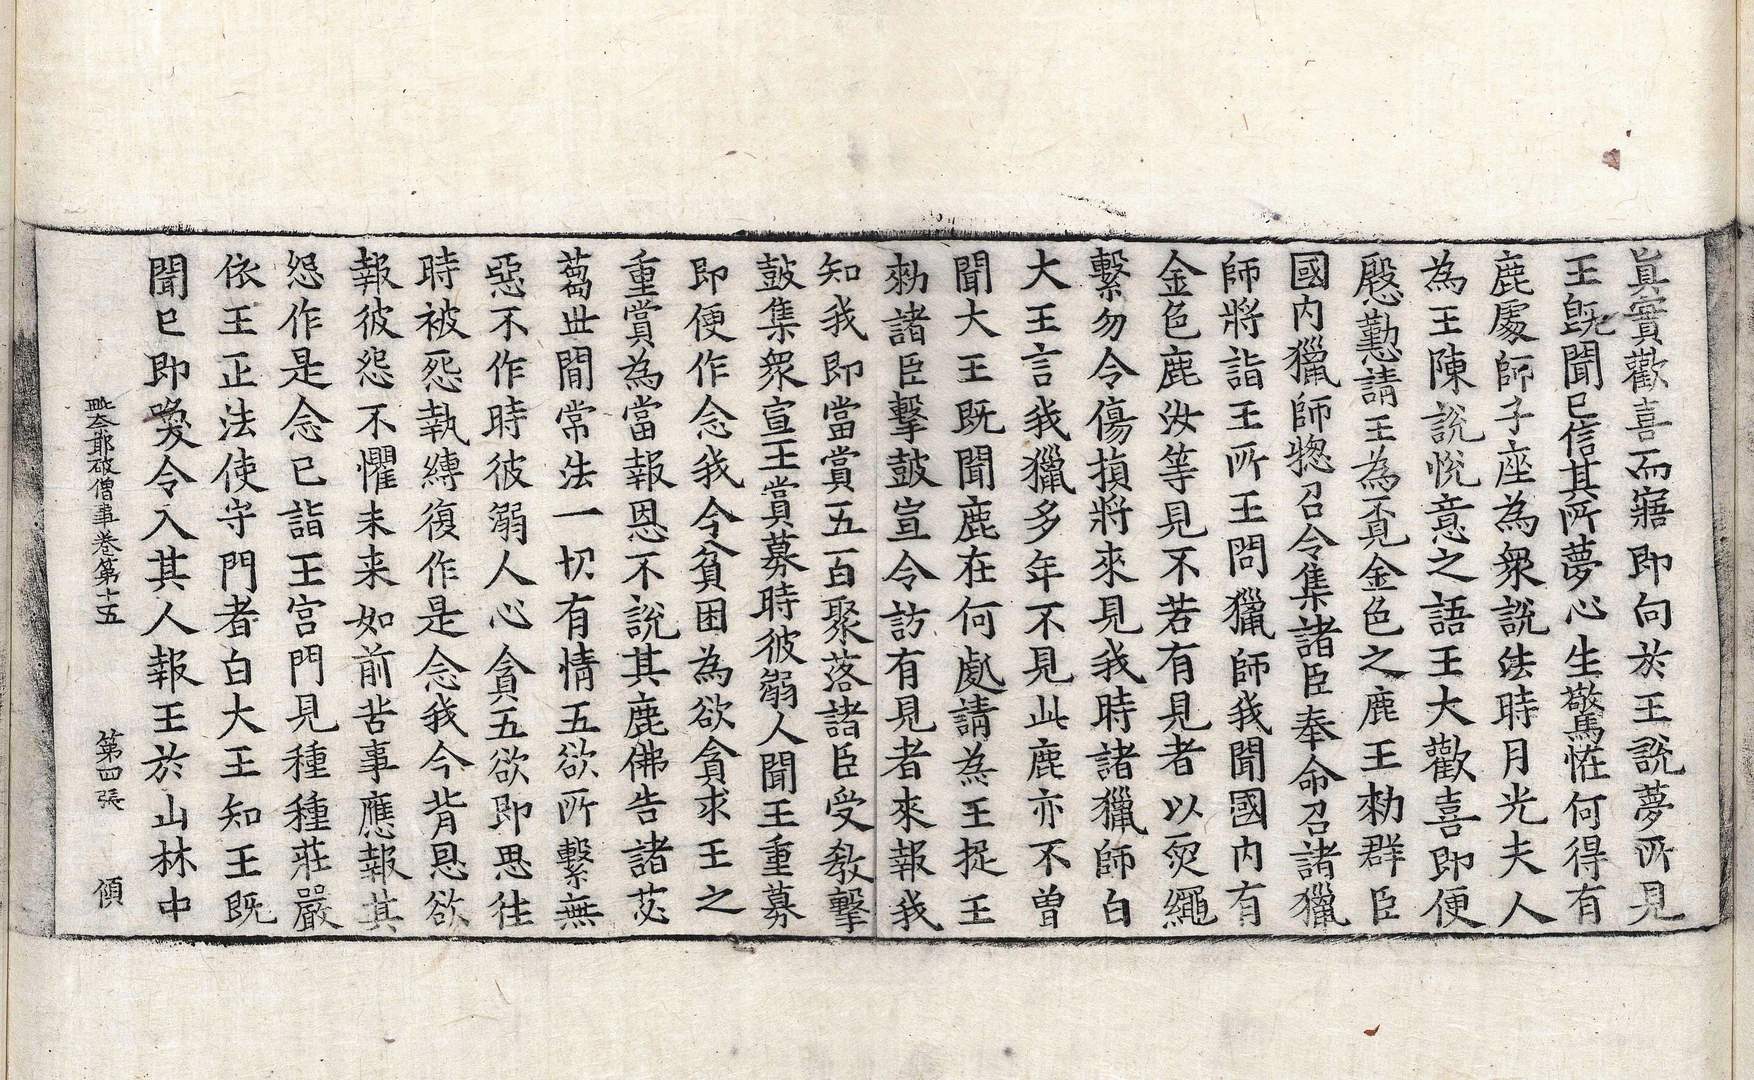 眞實歡喜而寤即向於王說夢所見
王旣聞已信其所夢心生驚怪何得有
鹿處師子座為衆說法時月光夫人
為王陳說悅意之語王大歡喜即便
慇懃請王為覓金色之鹿王勑群臣
國内獵師揔召令集諸臣奉命召諸獵
師將詣王所王問獵師我聞國内有
金色鹿汝等見不若有見者以罥繩
繫勿令傷損將來見我時諸獵師白
大王言我獵多年不見此鹿亦不曾
聞大王既聞鹿在何處請為王捉王
勑諸臣擊鼓宣令訪有見者來報我
知我即當賞五百聚落諸臣受教擊
鼓集衆宣王賞募時彼溺人聞王重募
即便作念我今貧困為欲貪求王之
重賞為當報恩不說其鹿佛告諸苾
蒭世間常法一切有情五欲所繫無
惡不作時彼溺人心貪五欲即思往
時被怨執縛復作是念我今背恩欲
報彼怨不懼未来如前苦事應報其
怨作是念已詣王宮門見種種莊嚴
依王正法使守門者白大王知王既
聞已即喚令入其人報王於山林中
毗奈耶破僧事卷第十五　第四張　傾